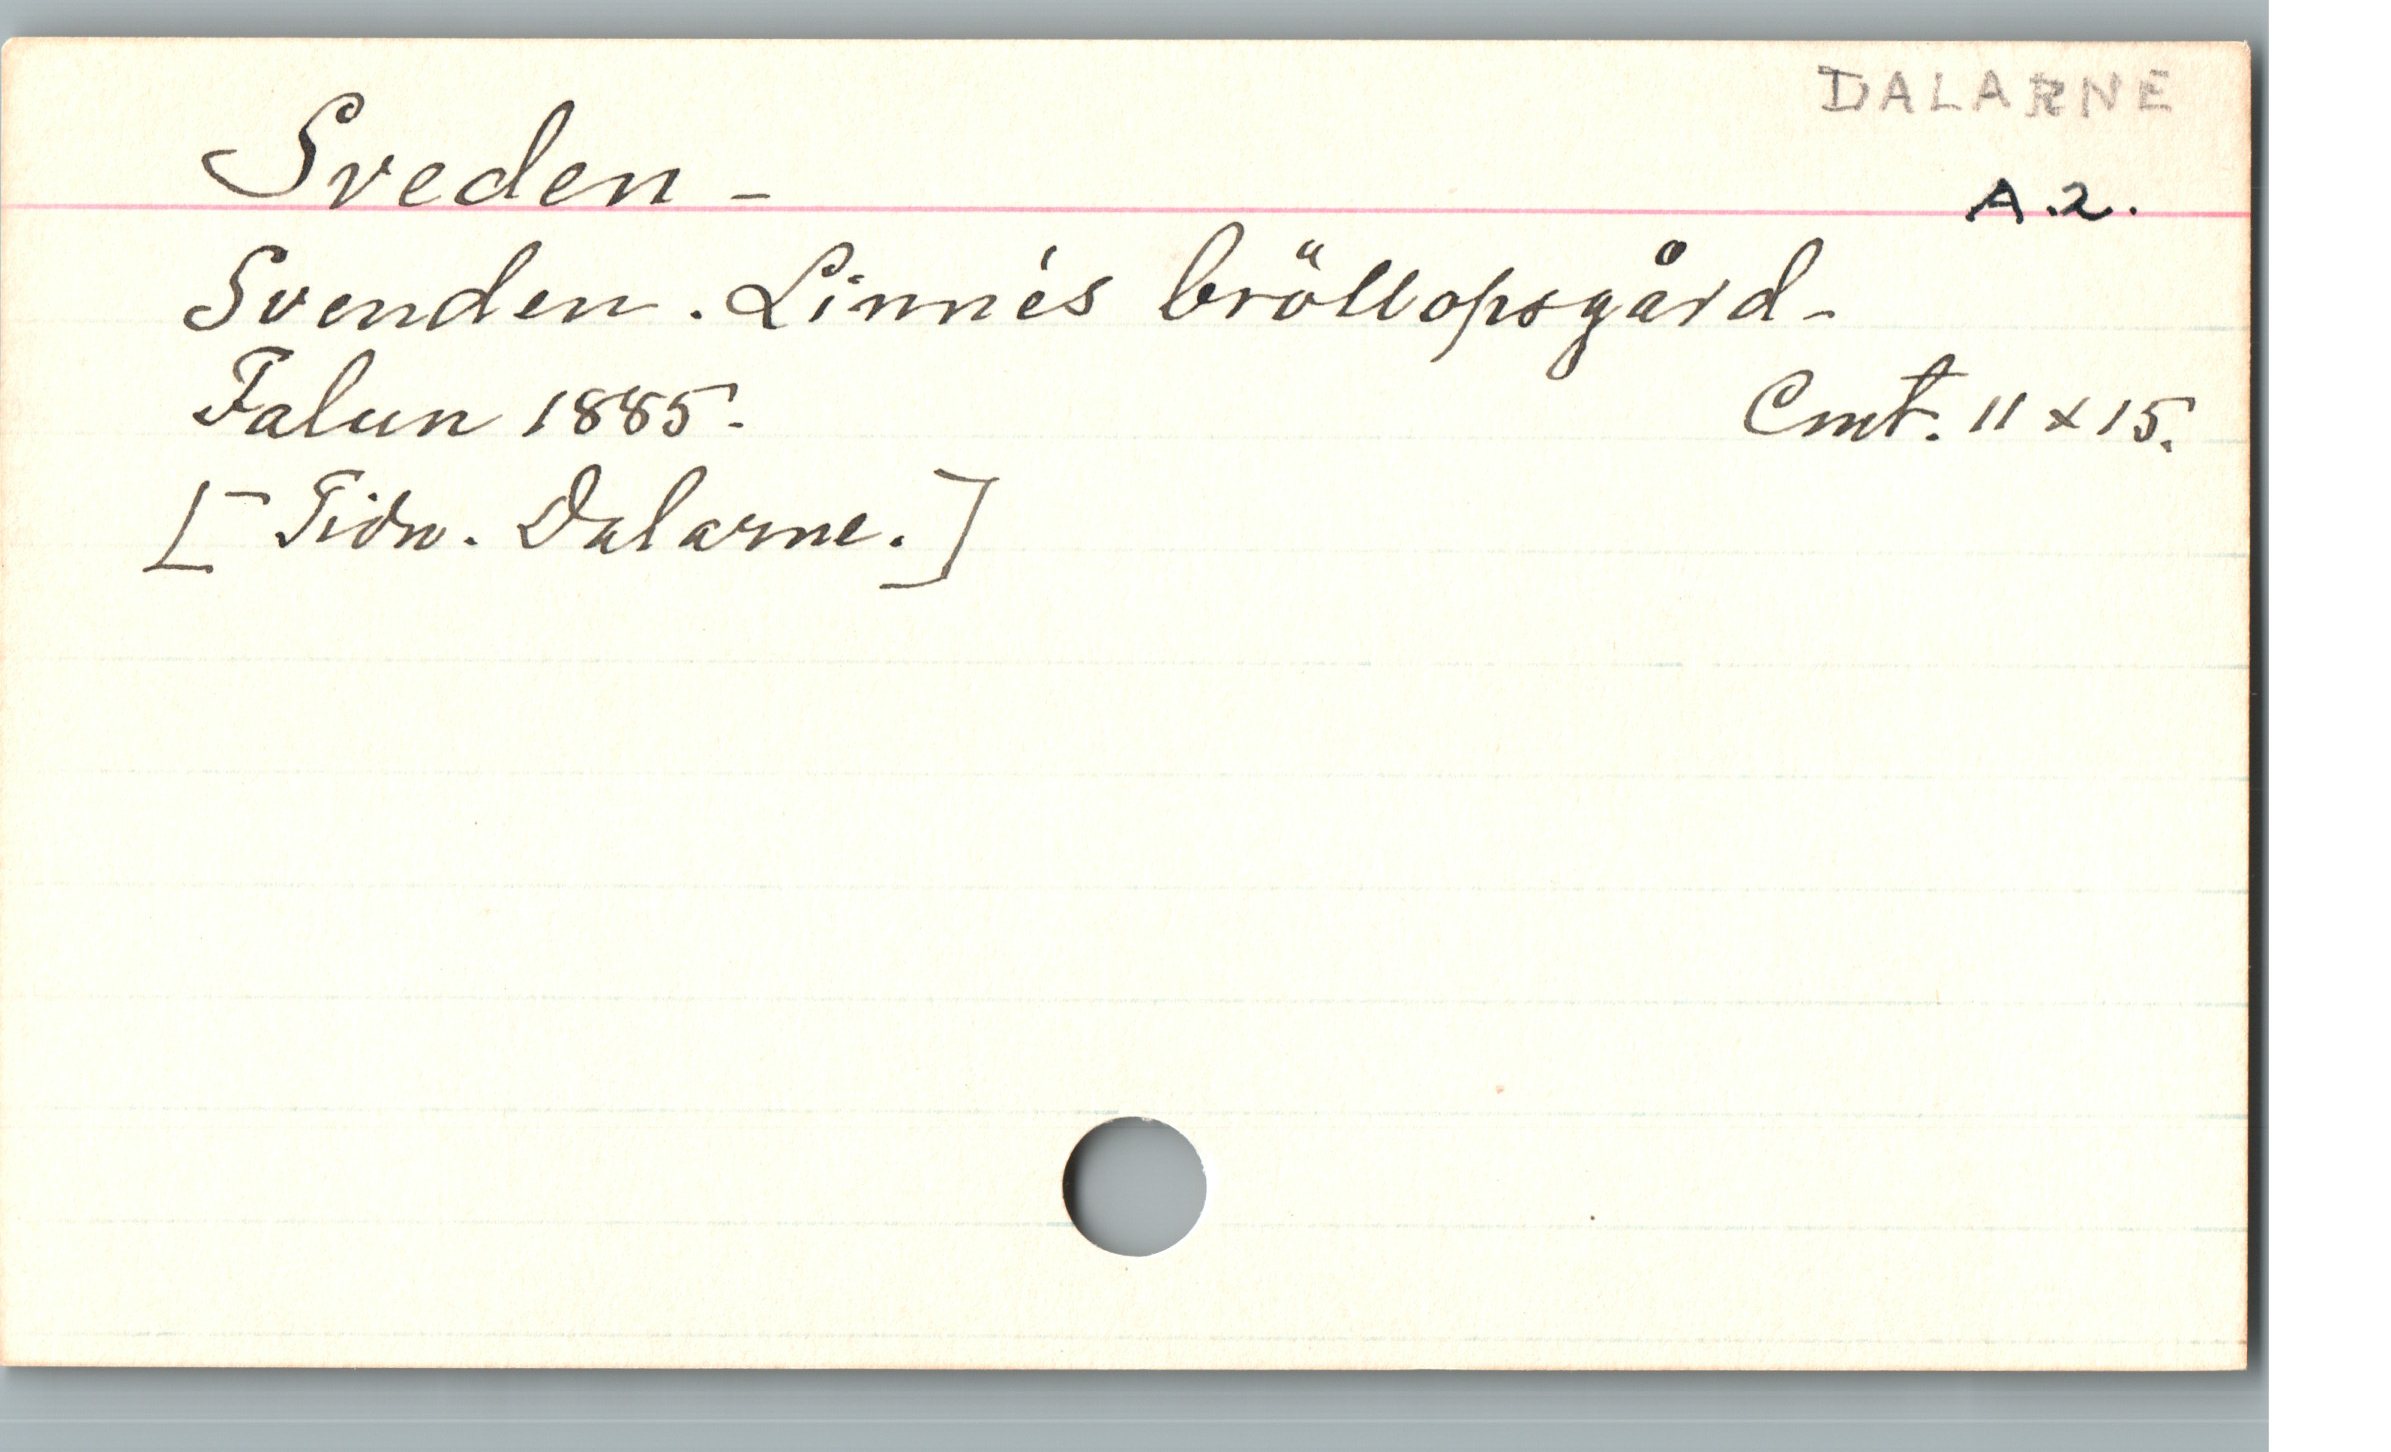 DALARNE
Sveden -
A.2.
Svenden. Linnés bröllopsgård.
Falun 1885.
Cmt. 11 x 15.
[Tidn. Dalarne.]